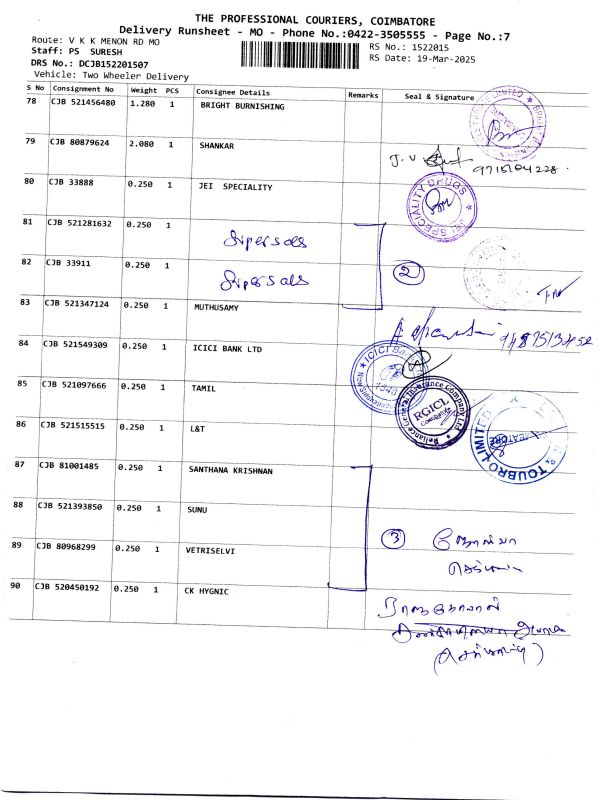 THE PROFESSIONAL COURIERS, COIMBATORE
Delivery Runsheet - MO - Phone No.:0422-3505555 - Page No.:7
Route: V K K MENON RD MO
Staff: PS SURESH
DRS No.: DCJB152201507
Vehicle: Two Wheeler Delivery
RS No.: 1522015
RS Date: 19-Mar-2025
S No Consignment No Weight PCS Consignee Details Remarks Seal & Signature
78 CJB 521456480 1.280 1 BRIGHT BURNISHING
79 CJB 80879624 2.080 1 SHANKAR
9715104228
80 CJB 33888 0.250 1 JEI SPECIALITY
JEI SPECIALITY DRUGS
81 CJB 521281632 0.250 1
82 CJB 33911 0.250 1
2
83 CJB 521347124 0.250 1 MUTHUSAMY
84 CJB 521549309 0.250 1 ICICI BANK LTD
ICICI Bank
85 CJB 521097666 0.250 1 TAMIL
Reliance General Insurance Company Ltd
RGICL
Coimbatore
86 CJB 521515515 0.250 1 L&T
TOUBRO LIMITED
87 CJB 81001485 0.250 1 SANTHANA KRISHNAN
88 CJB 521393850 0.250 1 SUNU
3
89 CJB 80968299 0.250 1 VETRISELVI
90 CJB 520450192 0.250 1 CK HYGNIC
ராஜகோபால்